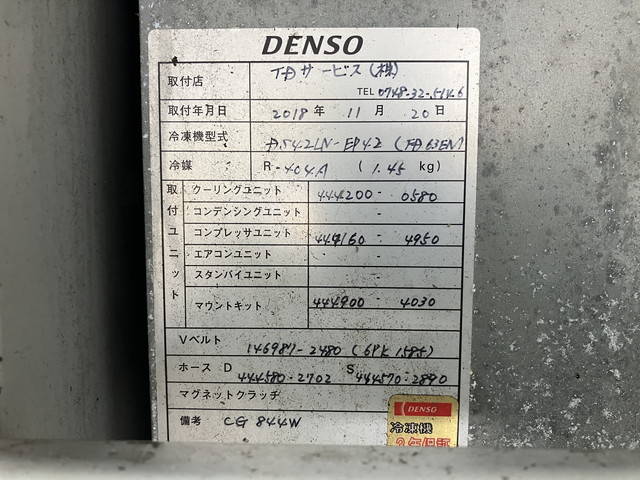 DENSO
取付店 TDサービス(株)
TEL 0748-32-5146
取付年月日 2018年 11月 20日
冷凍機型式
冷媒 R-404A (1.45 kg)
取付ユニット
クーリングユニット 444200-0580
コンデンシングユニット -
コンプレッサユニット 444160-4950
エアコンユニット -
スタンバイユニット -
マウントキット 444900-4030
Vベルト 146987-2480 (6PK 1585)
ホース D 444580-2702 S 444570-2890
マグネットクラッチ
備考 CG 844W
DENSO
冷凍機
2年保証